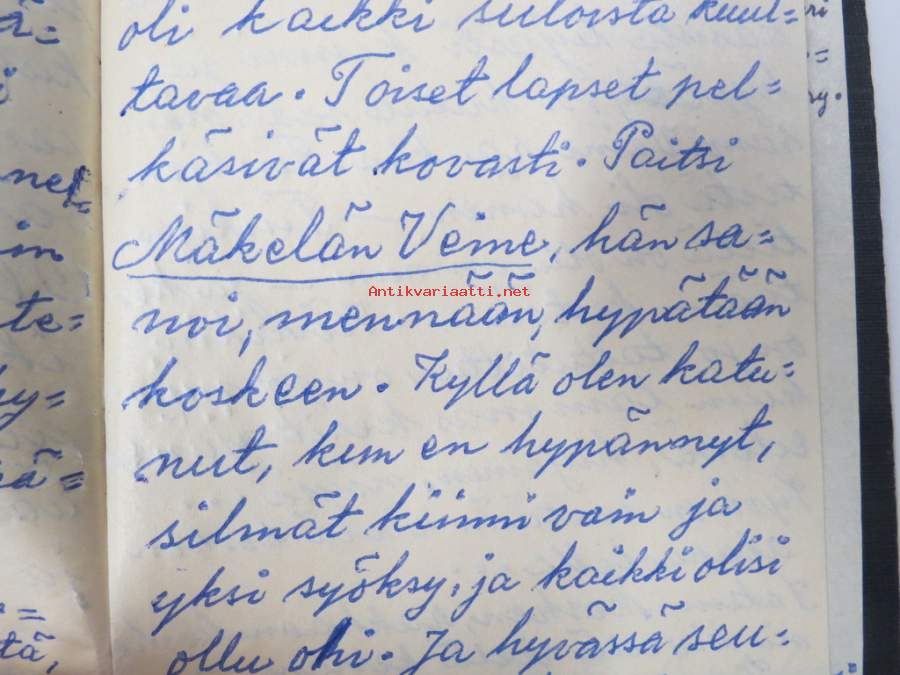 oli kaikki suloista kuul=
tavaa. Toiset lapset pel=
käsivät kovasti. Paitsi
Mäkelän Veime, hän sa=
noi, mennään, hypätään
koskeen. Kyllä olen katu=
nut, kum en hypännyt,
silmät kiinni vain ja
yksi syöksy, ja kaikki olisi
ollu ohi. Ja hyvässä seu=
Antikvariaatti.net